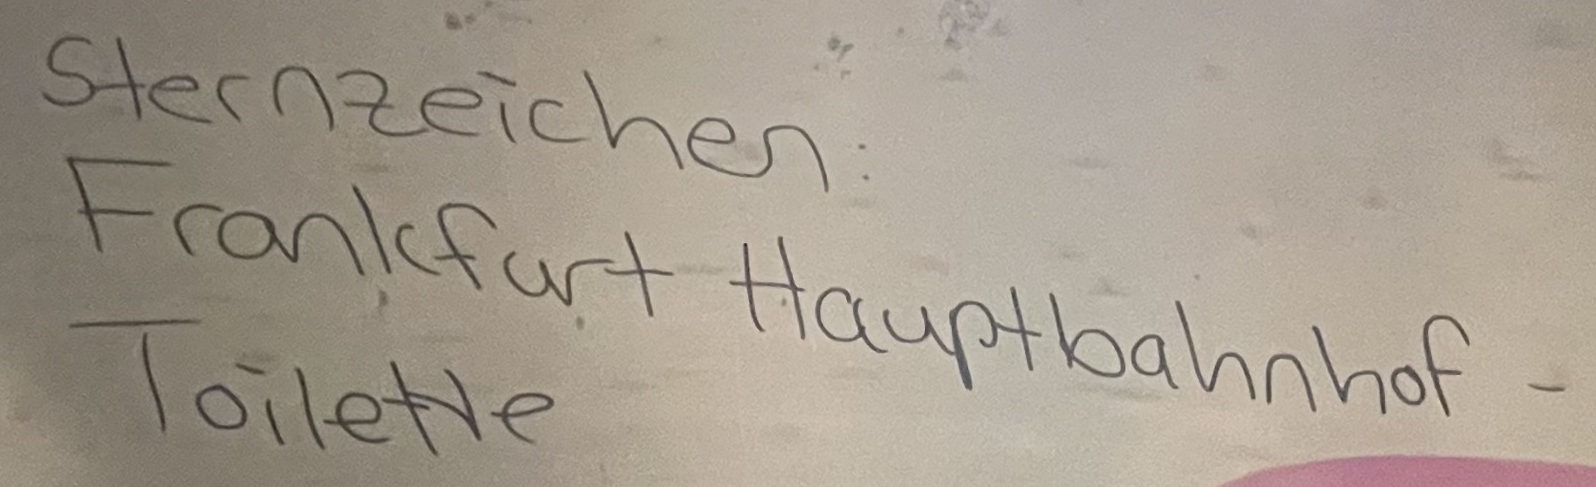 Sternzeichen:
Frankfurt Hauptbahnhof -
Toilette